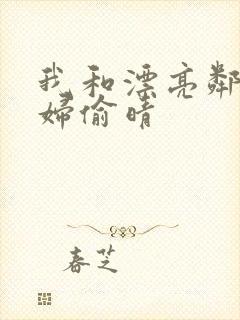 我和漂亮鄰
婦偷晴
春芝